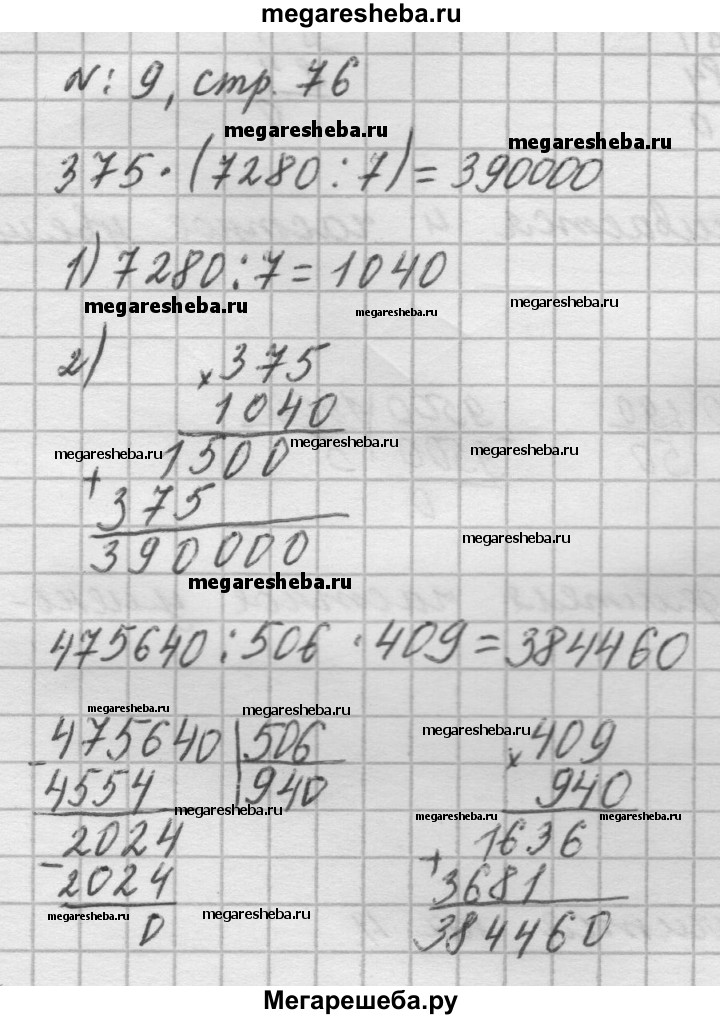 megaresheba.ru
№: 9, стр. 76
megaresheba.ru
megaresheba.ru
375·(7280:7)=390000
1) 7280:7=1040
megaresheba.ru
megaresheba.ru
megaresheba.ru
2) × 375
1040
megaresheba.ru
1500
megaresheba.ru
megaresheba.ru
+ 375
390000
megaresheba.ru
megaresheba.ru
475640:506·409=384460
megaresheba.ru
megaresheba.ru
megaresheba.ru
- 475640 | 506
× 409
4554
940
940
megaresheba.ru
megaresheba.ru
megaresheba.ru
2024
1636
- 2024
+ 3681
megaresheba.ru
megaresheba.ru
0
384460
Мегарешеба.ру